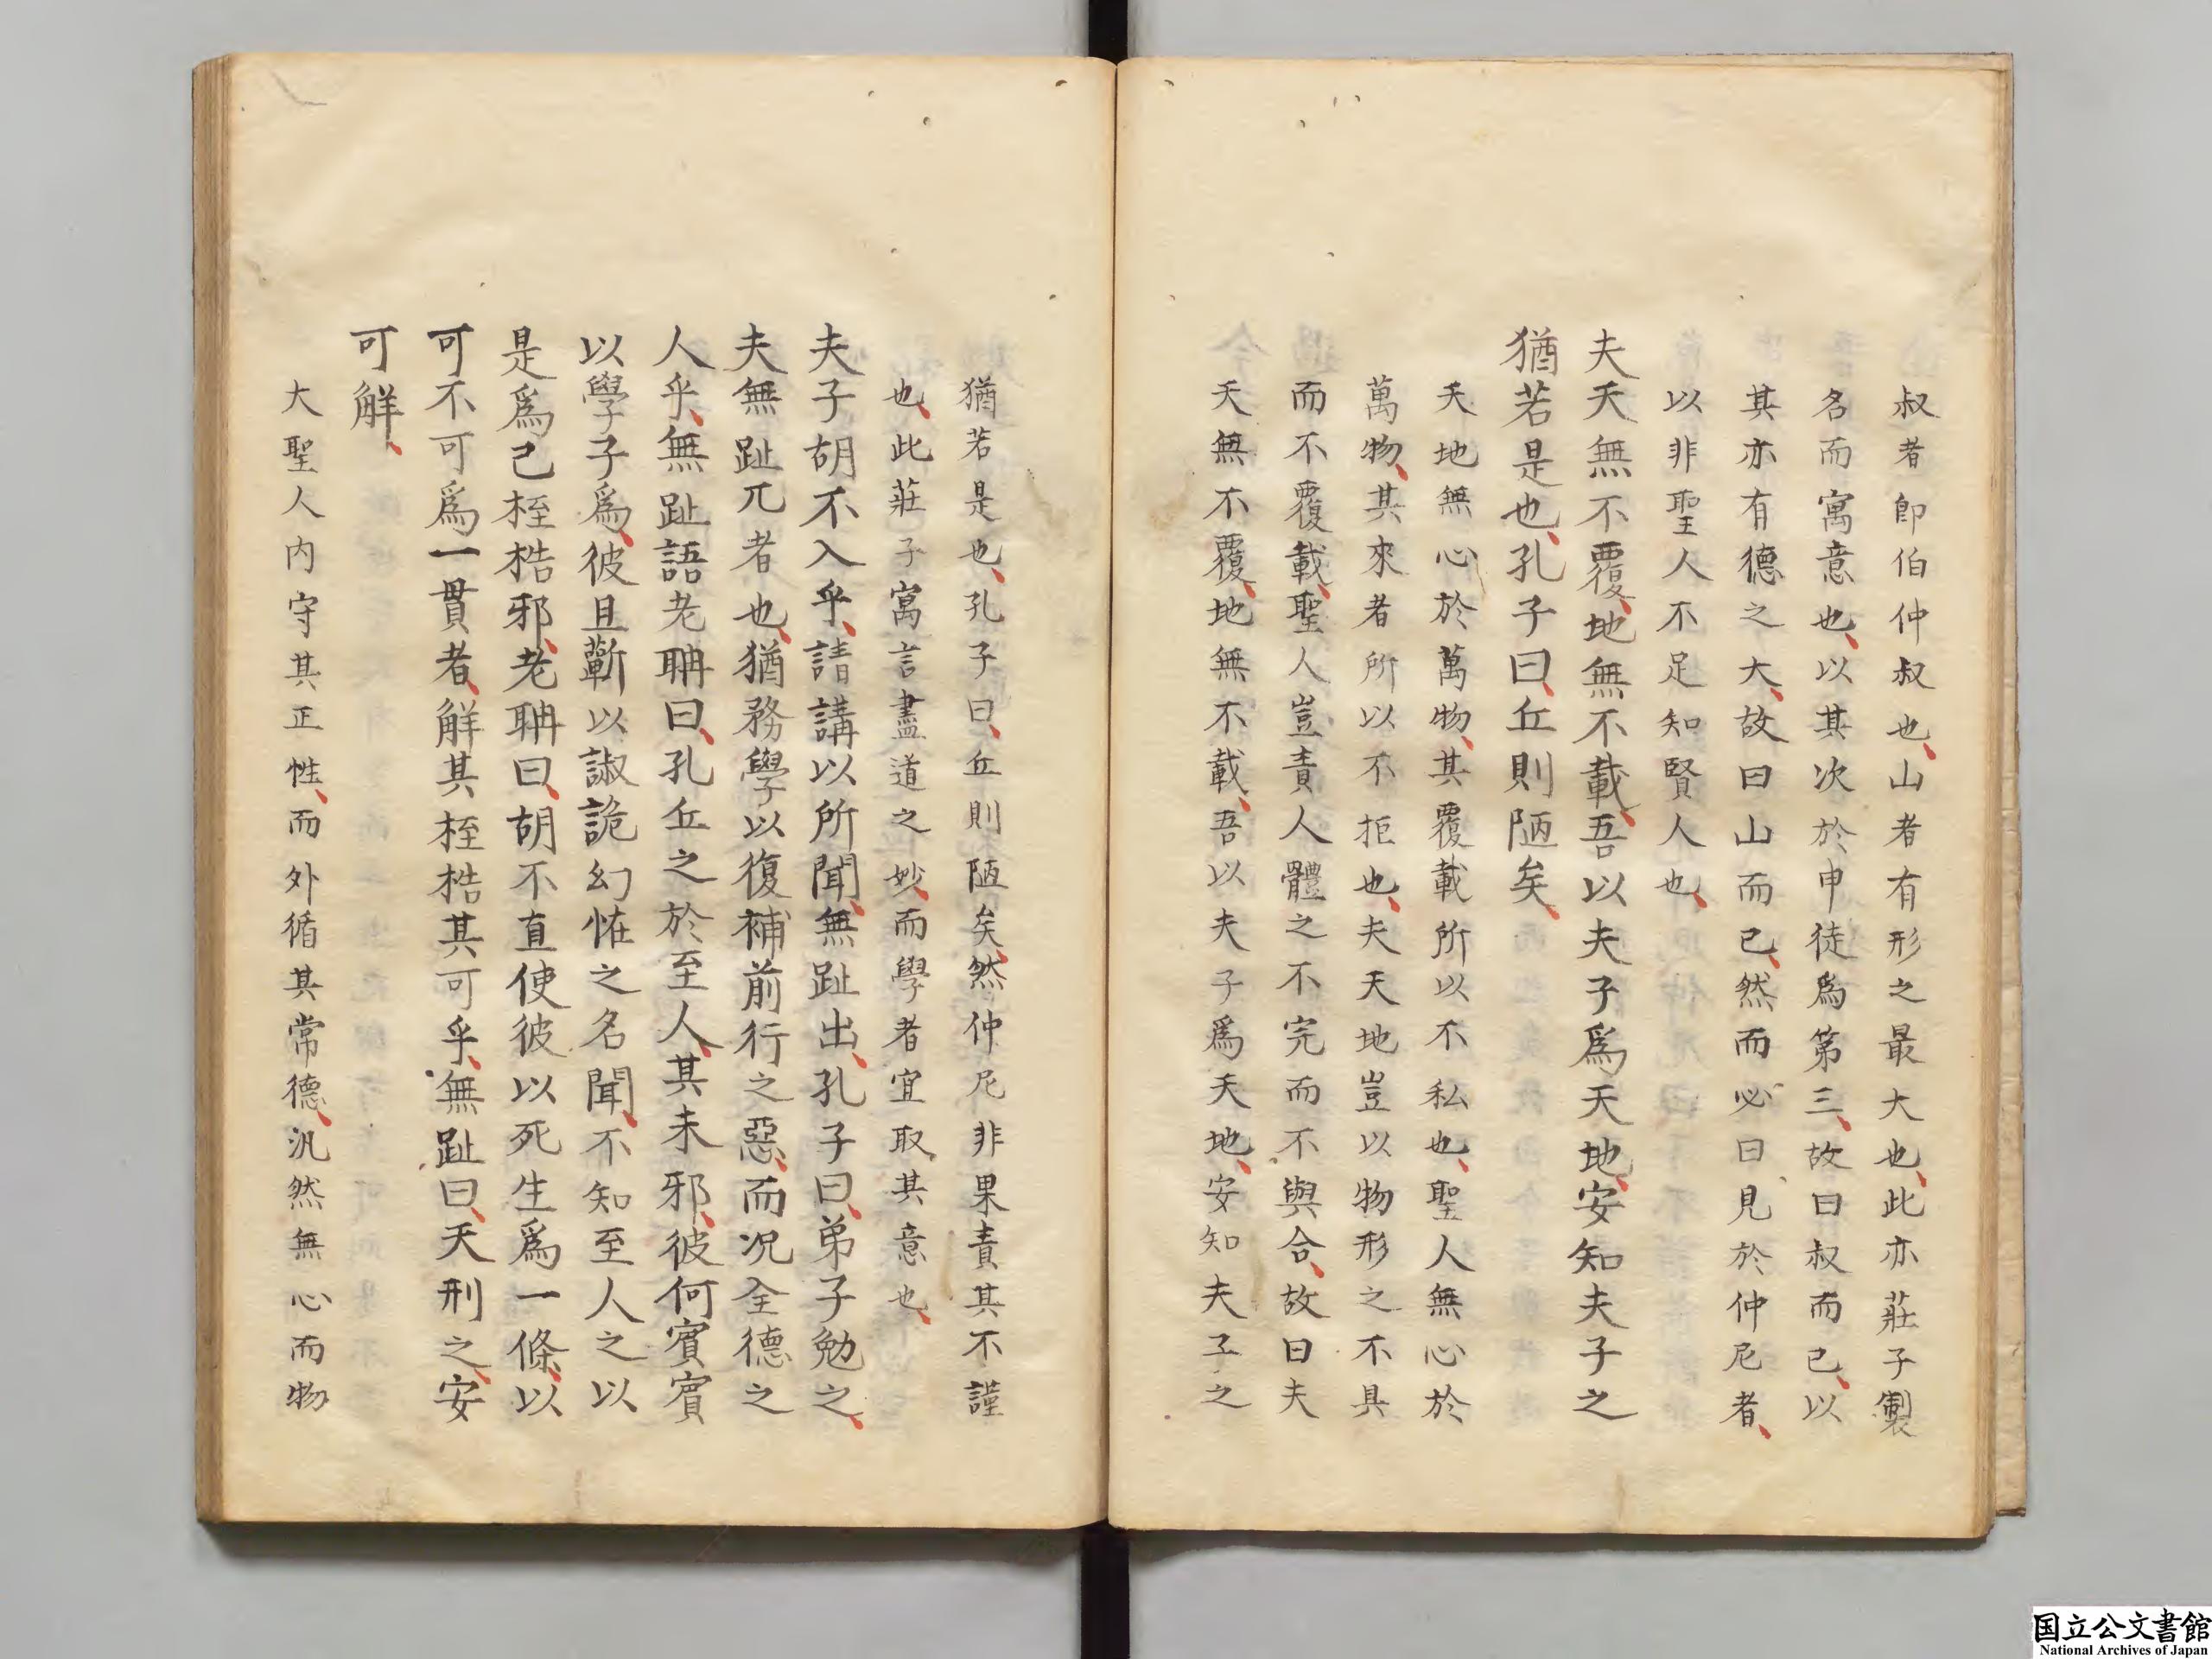 叔者卽伯仲叔也、山者有形之最大也、此亦莊子製
名而寓意也、以其次於申徒爲第三、故曰叔而已、以
其亦有德之大、故曰山而已、然而必曰見於仲尼者、
以非聖人不足知賢人也、
夫天無不覆、地無不載、吾以夫子爲天地、安知夫子之
猶若是也、孔子曰、丘則陋矣、
天地無心於萬物、其覆載所以不私也、聖人無心於
萬物、其來者所以不拒也、夫天地豈以物形之不具
而不覆載、聖人豈責人體之不完而不與合、故曰夫
天無不覆、地無不載、吾以夫子爲天地、安知夫子之
猶若是也、孔子曰、丘則陋矣、然仲尼非果責其不謹
也、此莊子寓言盡道之妙、而學者宜取其意也、
夫子胡不入乎、請講以所聞、無趾出、孔子曰、弟子勉之、
夫無趾兀者也、猶務學以復補前行之惡、而況全德之
人乎、無趾語老聃曰、孔丘之於至人、其未邪、彼何賓賓
以學子爲、彼且蘄以諔詭幻怪之名聞、不知至人之以
是爲己桎梏邪、老聃曰、胡不直使彼以死生爲一條、以
可不可爲一貫者、解其桎梏其可乎、無趾曰、天刑之、安
可解、
大聖人內守其正性、而外循其常德、汎然無心而物
国立公文書館
National Archives of Japan